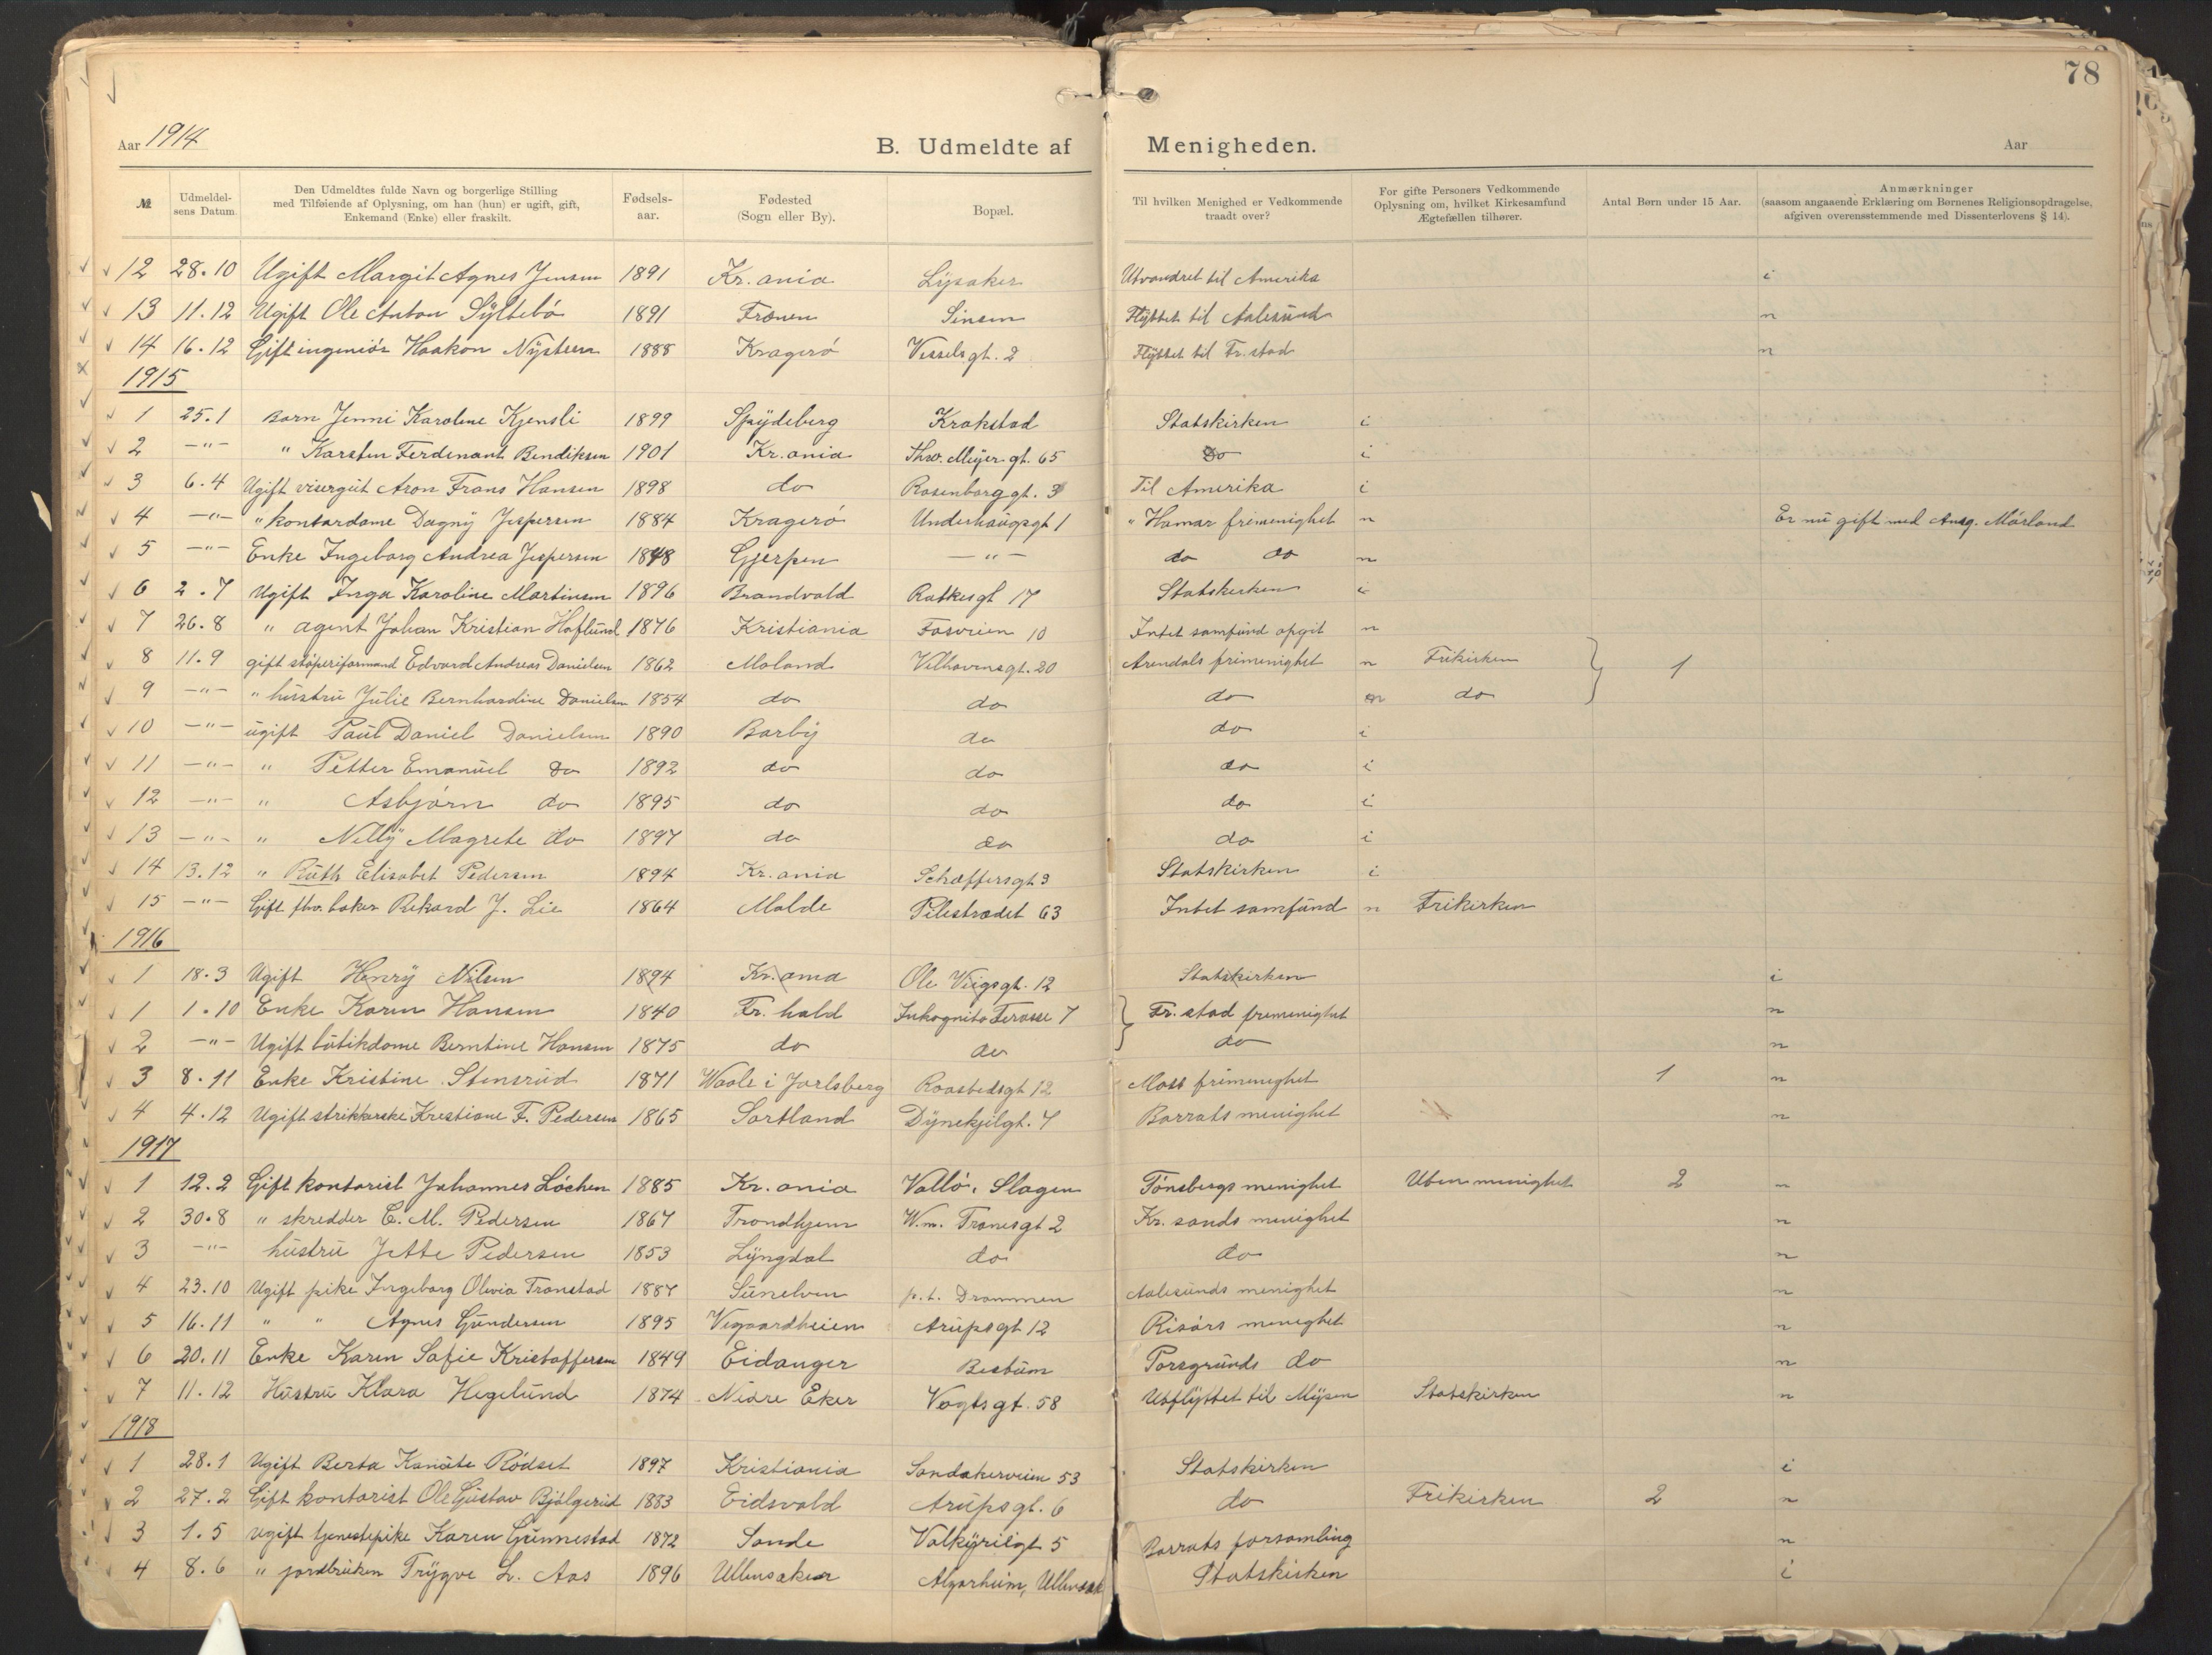 78
Aar 1914 B. Udmeldte af Menigheden. Aar
№ Udmeldelsens Datum Den Udmeldtes fulde Navn og borgerlige Stilling med Tilføiende af Oplysning, om han (hun) er ugift, gift, Enkemand (Enke) eller fraskilt. Fødselsaar. Fødested (Sogn eller By). Bopæl. Til hvilken Menighed er Vedkommende traadt over? For gifte Personers Vedkommende Oplysning om, hvilket Kirkesamfund Ægtefællen tilhører. Antal Børn under 15 Aar. Anmærkninger (saasom angaaende Erklæring om Børnenes Religionsopdragelse, afgiven overensstemmende med Dissenterlovens § 14).
12 28.10 Ugift Margit Agnes Jensen 1891 Kr.ania Lysaker Utvandret til Amerika i
13 11.12 Ugift Ole Anton Syltebö 1891 Frænen Sinsen Flyttet til Aalesund n
14 16.12 Gift ingeniör Haakon Nystrøm 1888 Kragerö Vesselsgt. 2 Flyttet til Fr.stad n
1915
1 25.1 Barn Jenni Karoline Kjensli 1899 Spydeberg Krakstad Statskirken i
2 -"- " Karsten Ferdinant Bendiksen 1901 Kr.ania Thv. Meyer gt. 65 Do i
3 6.4 Ugift visergut Aron Frans Hansen 1898 do Rosenborggt. 3 Til Amerika i
4 -"- " kontordame Dagny Jespersen 1884 Kragerö Underhaugsgt 1 " Hamar frimenighet n Er nu gift med Ansg. Mörland
5 -"- Enke Ingeborg Andrea Jespersen 1848 Gjerpen -"- do do n
6 2.7 Ugift Inga Karoline Martinsen 1896 Brandvold Ratkesgt 17 Statskirken i
7 26.8 " agent Johan Kristian Haflund 1876 Kristiania Fosveien 10 Intet samfund opgit n
8 11.9 gift stöperiformand Edvard Andreas Danielsen 1862 Moland Vilhavensgt. 20 Arendals frimenighet n Frikirken } 1
9 -"- " hustru Julie Bernhardine Danielsen 1854 do do do n do
10 -"- ugift Paul Daniel Danielsen 1890 Barby do do i
11 -"- " Petter Emanuel Do 1892 do do do i
12 -"- " Asbjörn do 1895 do do do i
13 -"- " Nelly Magrete do 1897 do do do i
14 13.12 " Ruth Elisabet Pedersen 1894 Kr.ania Schæffersgt 3 Statskirken i
15 -"- Gift fhv. baker Rikard J. Lie 1864 Molde Pilestrædet 63 Intet samfund n Frikirken
1916
1 18.3 Ugift Henry Nilsen 1894 Kr.ania Ole Viigsgt. 12 Statskirken i
1 1.10 Enke Karen Hansen 1840 Fr.hald Inkognito Terasse 7 } Fr.stad frimenighet n
2 -"- Ugift butikdame Berntine Hansen 1875 do do do n
3 8.11 Enke Kristine Stensrud 1871 Waale i Jarlsberg Roastedsgt 12 Moss frimenighet 1 n
4 4.12 Ugift strikkerske Krestiane F. Pedersen 1865 Sortland Dynekjilgt. 7 Barrats menighet n
1917
1 12.2 Gift kontorist Johannes Löchen 1885 Kr.ania Vallö, Slagen Tönsbergs menighet Uten menighet 2 n
2 30.8 " skredder C. M. Pedersen 1867 Trondhjem W.m. Tranesgt 2 Kr.sands menighet n
3 -"- hustru Jette Pedersen 1853 Lyngdal do do n
4 23.10 Ugift pike Ingeborg Olivia Tronstad 1887 Sunelven p.t. Drammen Aalesunds menighet n
5 16.11 " " Agnes Gundersen 1895 Vegaardheien Arupsgt 12 Risörs menighet n
6 20.11 Enke Karen Sofie Kristoffersen 1849 Eidanger Bestum Porsgrunds do n
7 11.12 Hustru Klara Hegelund 1874 Nedre Eker Vogtsgt. 58 Utflyttet til Mysen Statskirken n
1918
1 28.1 Ugift Berta Kanute Rödset 1897 Kristiania Sandakerveien 53 Statskirken i
2 27.2 Gift kontorist Ole Gustav Bjölgerud 1883 Eidsvold Arupsgt. 6 do Frikirken 2 n
3 1.5 Ugift tjenestepike Karen Gunnestad 1872 Sande Valkyriegt 5 Barrats forsamling n
4 8.6 " jordbruken Trygve L. Aas 1896 Ullensaker Algarheim, Ullensak Statskirken i